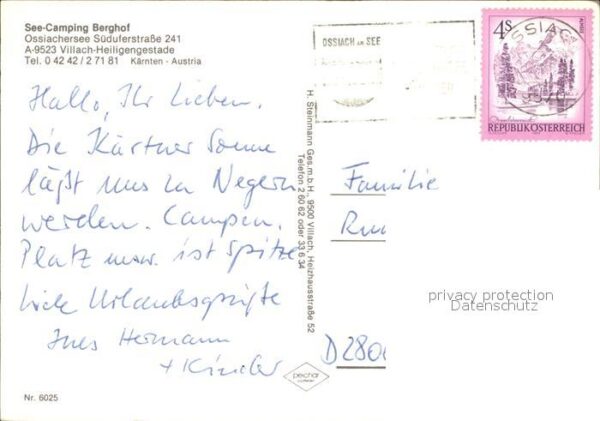 See-Camping Berghof
Ossiachersee Süduferstraße 241
A-9523 Villach-Heiligengestade
Tel. 0 42 42 / 2 71 81 Kärnten - Austria
OSSIACH AM SEE
4S
OSSIACH
REPUBLIK ÖSTERREICH
Hallo, Ihr Lieben.
Die Kärtner Sonne
läßt uns zu Negern
werden. Campen,
Platz usw. ist Spitze
Viele Urlaubsgrüße
Ines Hermann
+ Kinder
H. Steinmann Ges.m.b.H., 9500 Villach, Heizhausstraße 52
Telefon 2 60 62 oder 33 6 34
Familie
D 280
privacy protection
Datenschutz
pechar
Nr. 6025